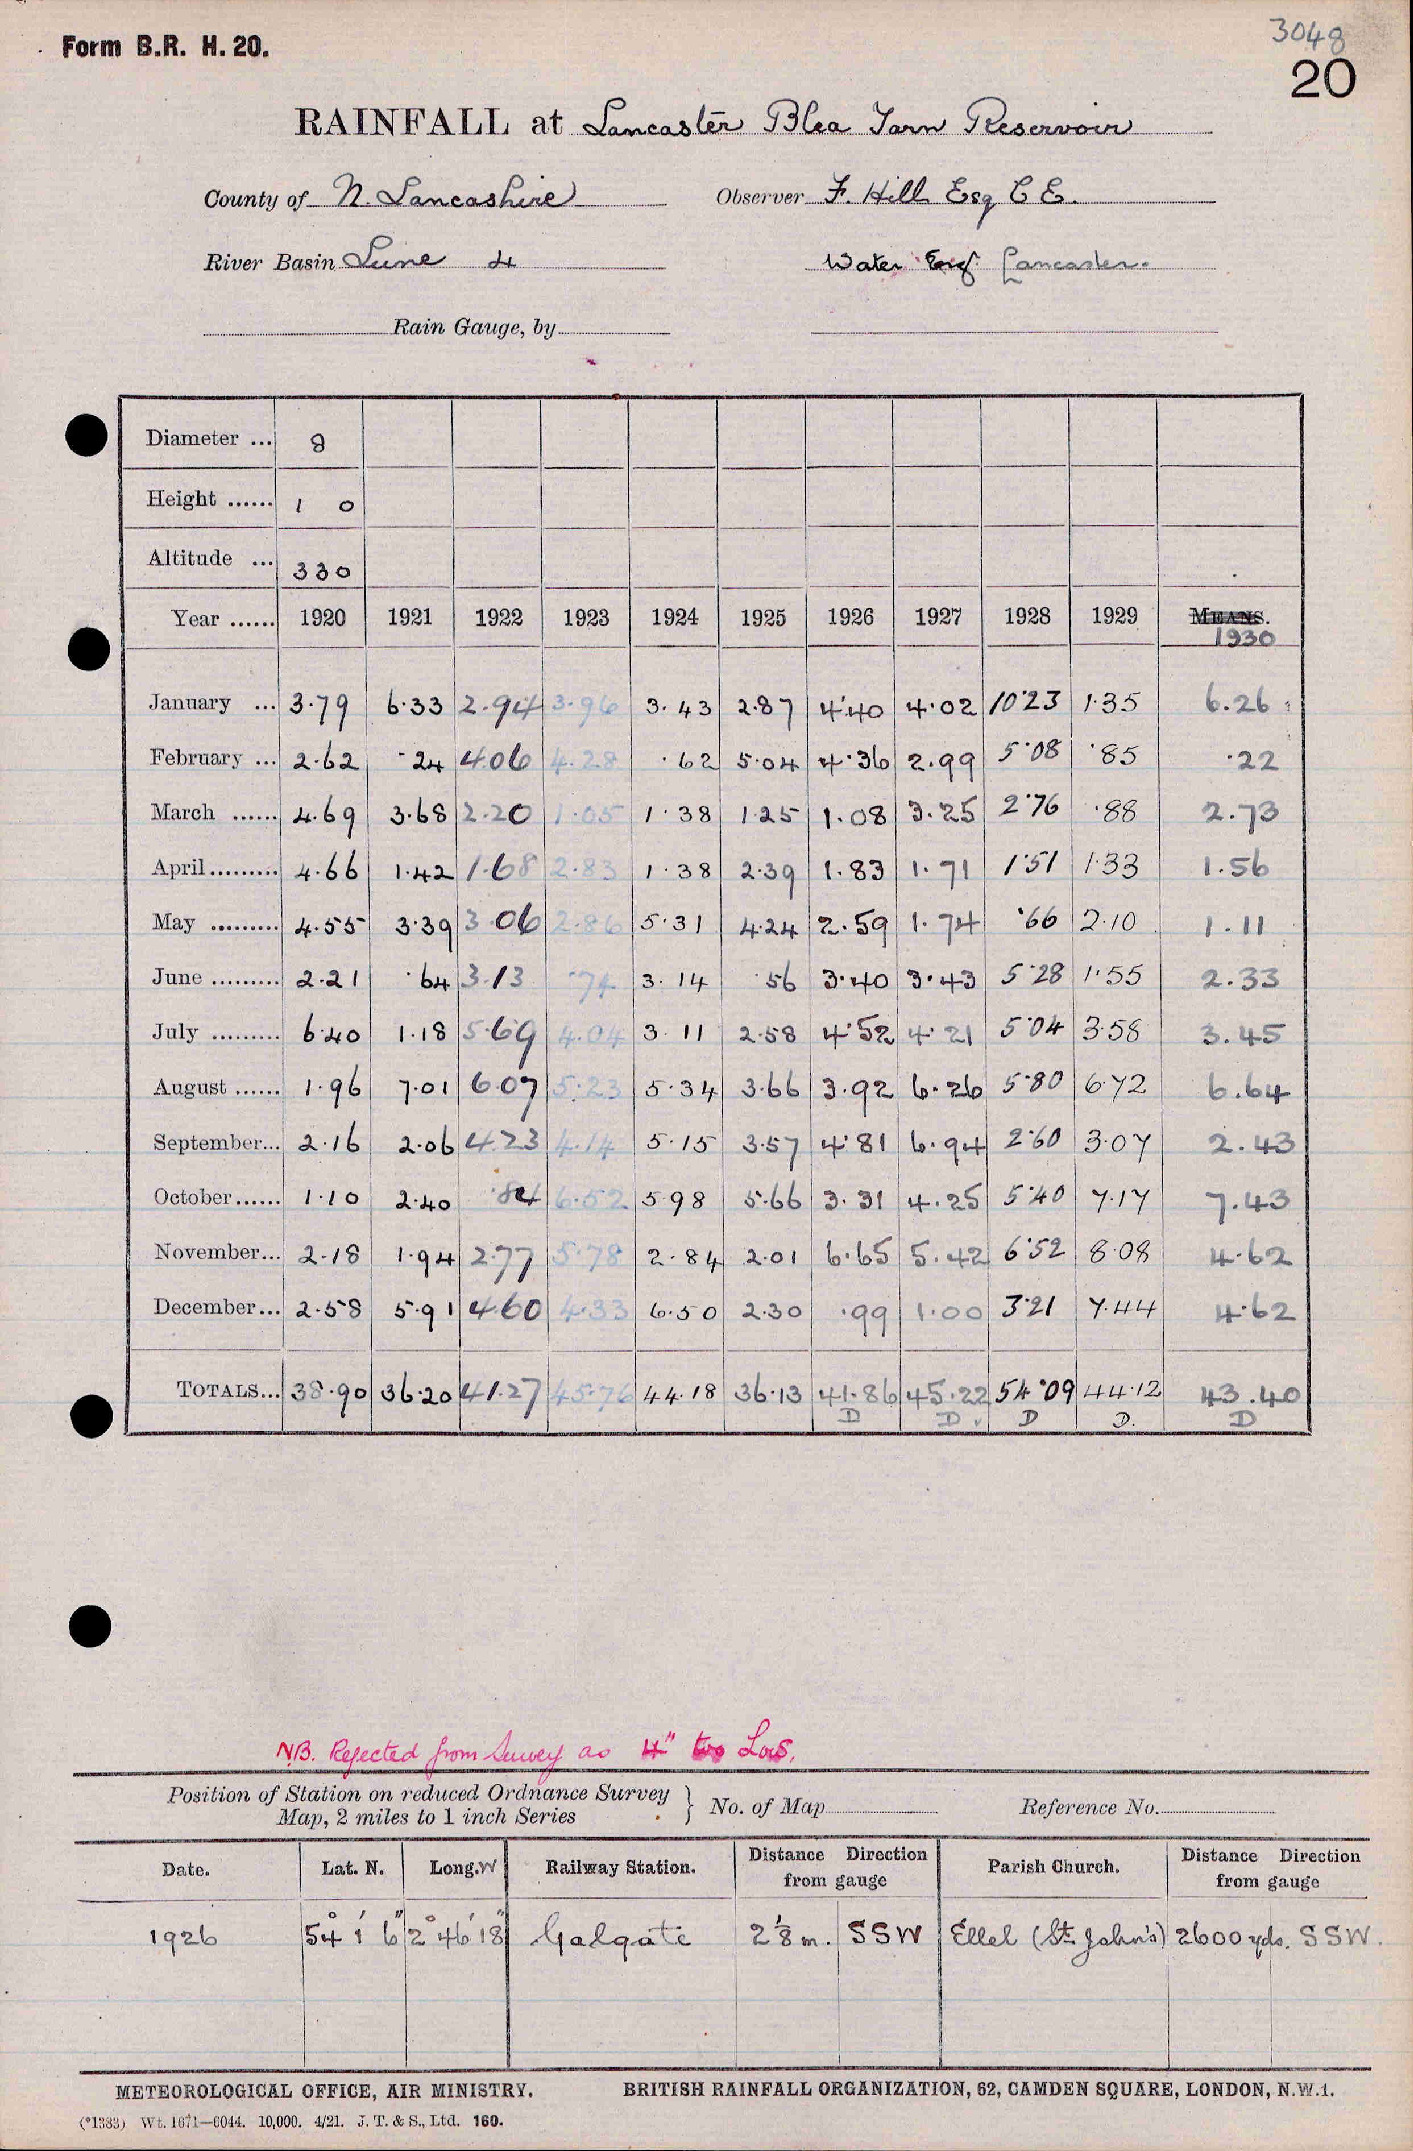 Form B.R. H. 20.
3048
20
RAINFALL at Lancaster Blea Tarn Reservoir
County of N. Lancashire Observer F. Hill Esq C E.
River Basin Lune 4 Water Eng. Lancaster.
Rain Gauge, by
Diameter ... 8
Height ...... 1 0
Altitude ... 330
Year ...... 1920 1921 1922 1923 1924 1925 1926 1927 1928 1929 MEANS.
1930
January ... 3.79 6.33 2.94 3.96 3.43 2.87 4.40 4.02 10.23 1.35 6.26
February ... 2.62 .24 4.06 4.28 .62 5.04 4.36 2.99 5.08 .85 .22
March ...... 4.69 3.68 2.20 1.05 1.38 1.25 1.08 3.25 2.76 .88 2.73
April......... 4.66 1.42 1.68 2.83 1.38 2.39 1.83 1.71 1.51 1.33 1.56
May ......... 4.55 3.39 3.06 2.86 5.31 4.24 2.59 1.74 .66 2.10 1.11
June ......... 2.21 .64 3.13 .74 3.14 .56 3.40 3.43 5.28 1.55 2.33
July ......... 6.40 1.18 5.69 4.04 3.11 2.58 4.52 4.21 5.04 3.58 3.45
August ...... 1.96 7.01 6.07 5.23 5.34 3.66 3.92 6.26 5.80 6.72 6.64
September... 2.16 2.06 4.23 4.14 5.15 3.57 4.81 6.94 2.60 3.07 2.43
October...... 1.10 2.40 .84 6.52 5.98 5.66 3.31 4.25 5.40 7.17 7.43
November... 2.18 1.94 2.77 5.78 2.84 2.01 6.65 5.42 6.52 8.08 4.62
December... 2.58 5.91 4.60 4.33 6.50 2.30 .99 1.00 3.21 7.44 4.62
TOTALS... 38.90 36.20 41.27 45.76 44.18 36.13 41.86 45.22 54.09 44.12 43.40
D D. D D. D
N.B. Rejected from Survey as 4" too Low.
Position of Station on reduced Ordnance Survey
Map, 2 miles to 1 inch Series } No. of Map Reference No.
Date. Lat. N. Long. W Railway Station. Distance Direction from gauge Parish Church. Distance Direction from gauge
1926 54° 1' 6" 2° 46' 18" Galgate 2 1/8 m. SSW Ellel (St. John's) 2600 yds. SSW.
METEOROLOGICAL OFFICE, AIR MINISTRY. BRITISH RAINFALL ORGANIZATION, 62, CAMDEN SQUARE, LONDON, N.W.1.
(*1383) Wt. 1671—6044. 10,000. 4/21. J. T. & S., Ltd. 160.